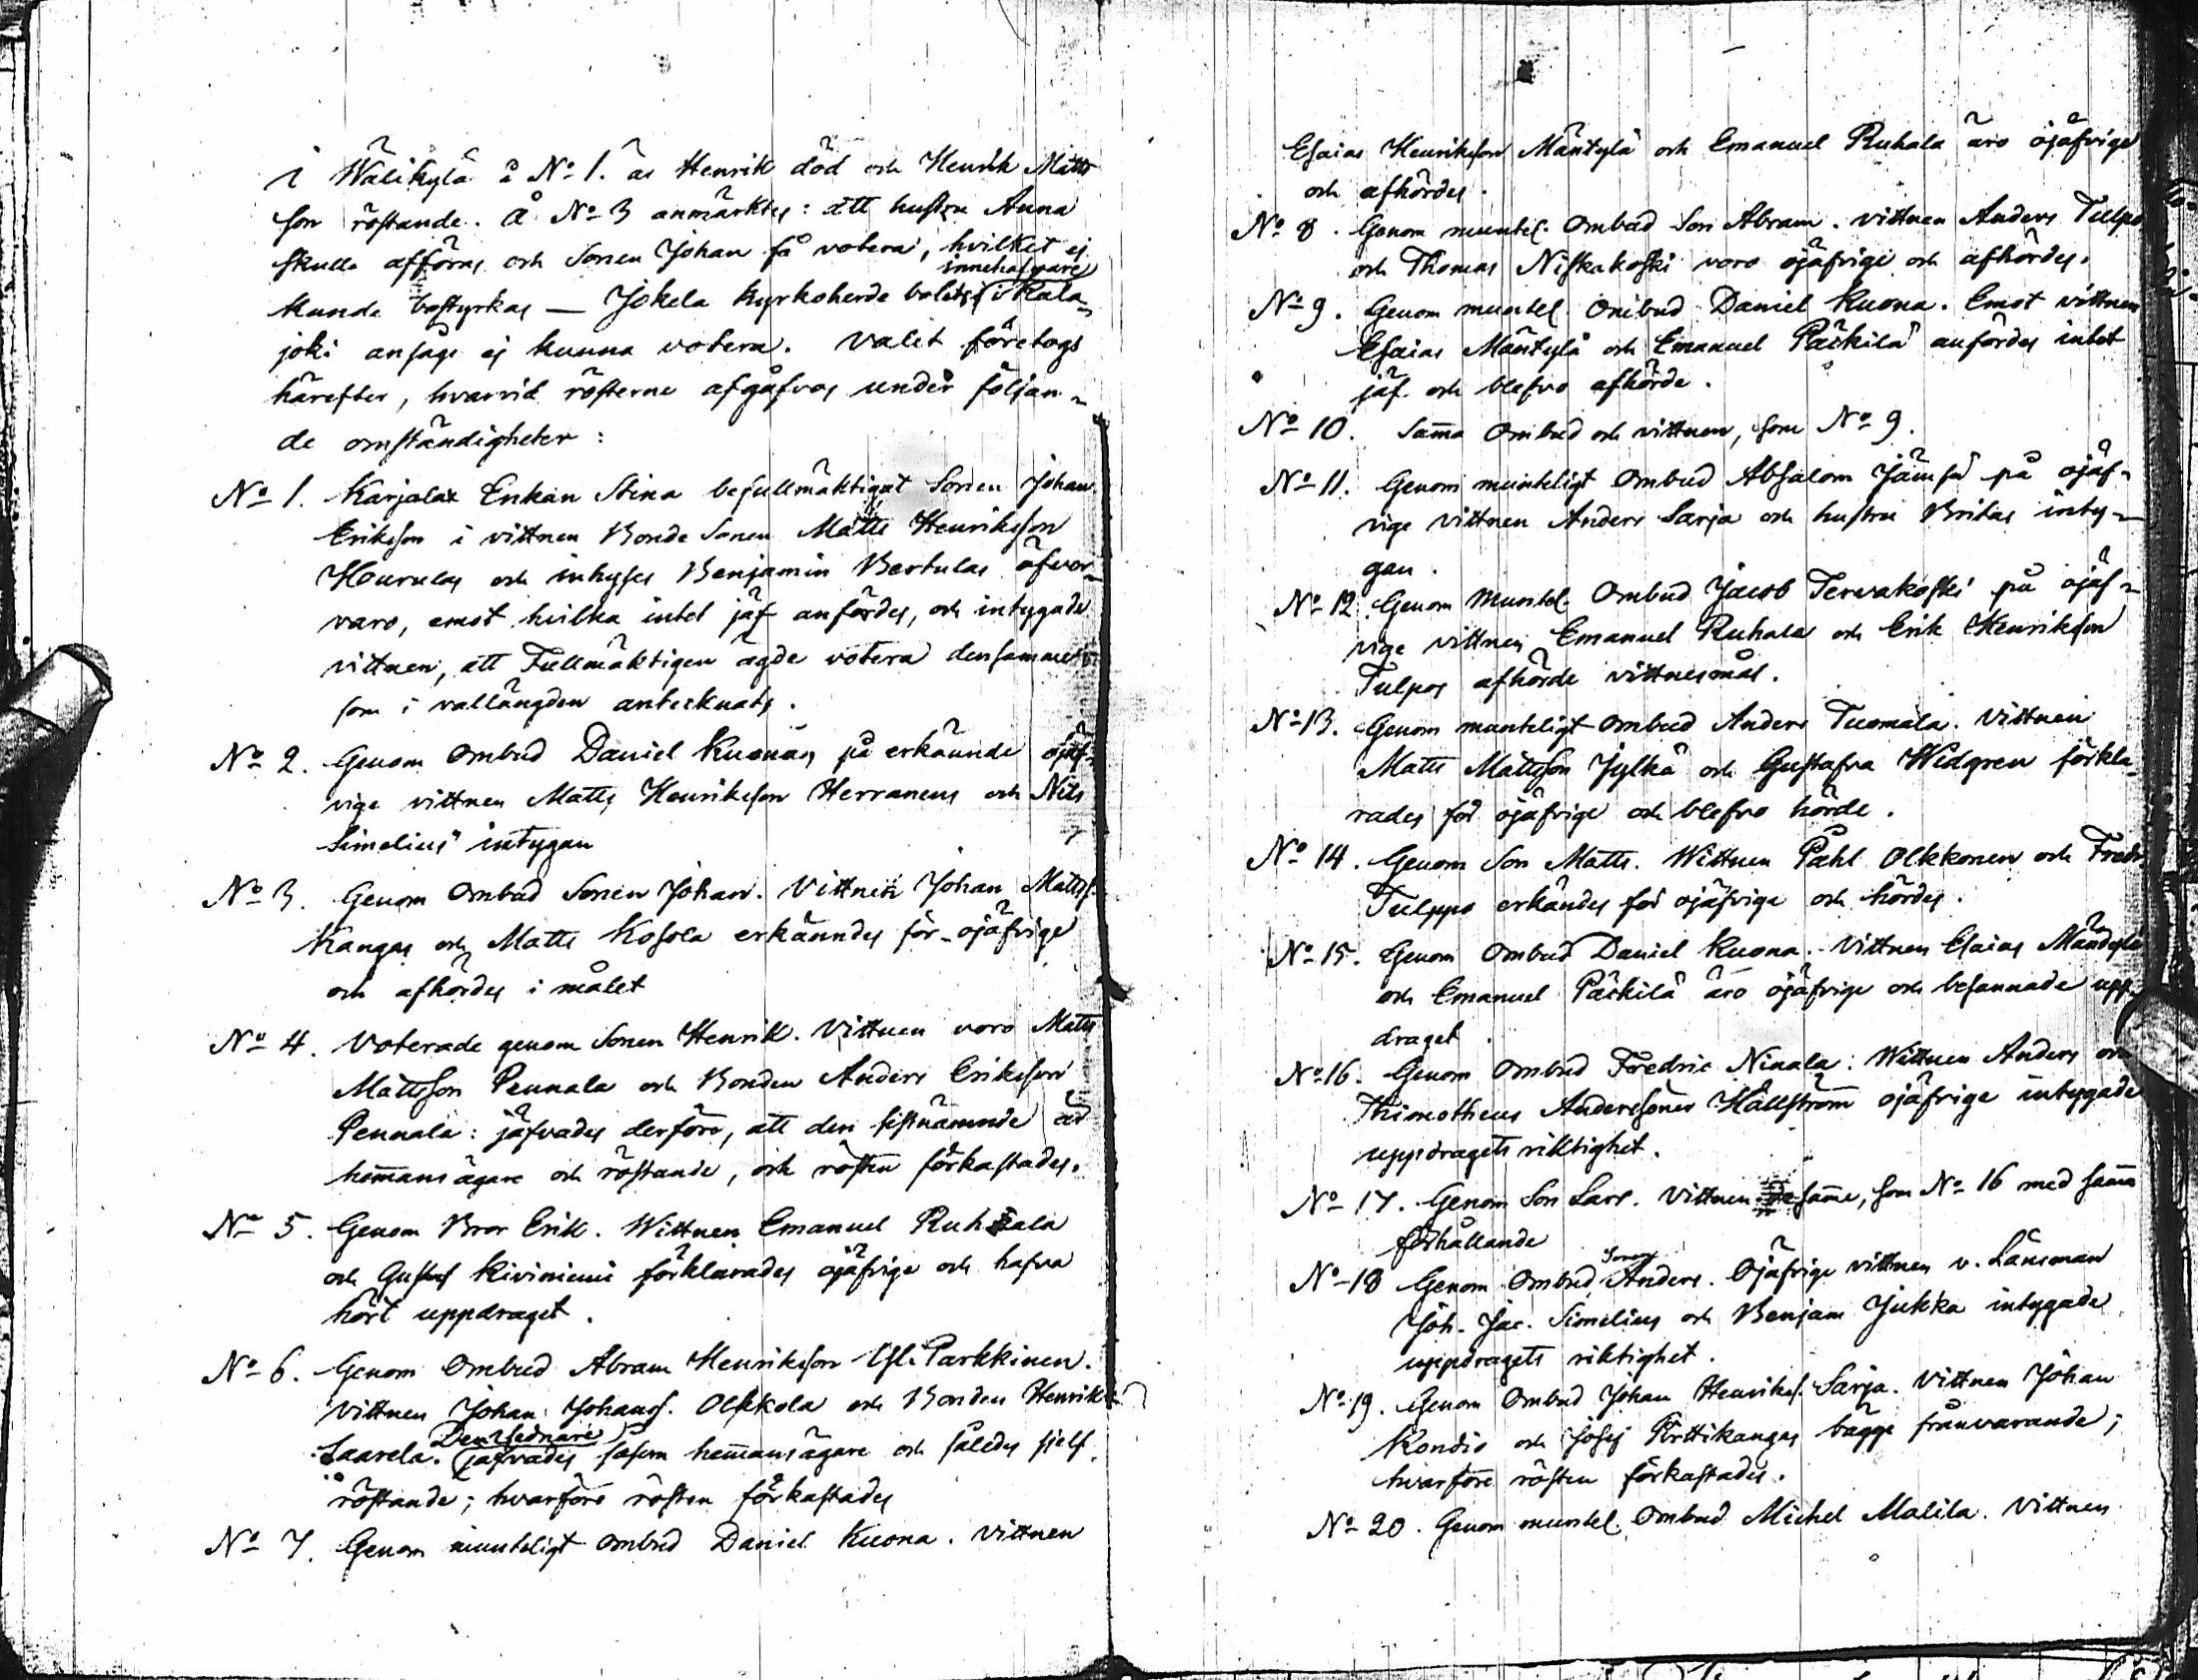 i Wälikylä å No 1. är Henrik död och Henrik Matts
son röstande. Å No 3 anmärktes: att hustru Anna
skulle afföras och Sonen Johan få votera, hvilket ej
innehafvare
kunde bestyrkas — Jokela kyrkoherde bolets i Kala-
joki ansågs ej kunna votera. Valet företogs
härefter, hvarvid rösterne afgåfvos under följan-
de omständigheter:
No 1. Karjalax Enkan Stina befullmäktigat Sonen Johan
Eriksson i vittnen Bonde Sonen Matts Henriksson
Hourulas och inhyses Benjamin Bertulas öfver-
varo, emot hvilka intet jäf anfördes, och intygade
vittnen, att Fullmäktigen ägde votera densamme
som i vallängden antecknats.
No 2. Genom Ombud Daniel Kuonas på erkände ojäf-
vige vittnen Matts Henriksson Herraneus och Nils
Simelius' intygan
No 3. Genom Ombud Sonen Johan. Vittnen Johan Mattss.
Kangas och Matts Kosola erkändes för ojäfvige
och afhördes i målet
No 4. Voterade genom Sonen Henrik. Vittnen voro Matts
Mattsson Pennala och Bonden Anders Eriksson
Pennala: jäfvades derföre, att den sistnämnde är
hem̄ansägare och röstande, och rösten förkastades.
No 5. Genom Bror Erik. Wittnen Emanuel Ruhala
och Gustaf Kiviniemi förklarades ojäfvige och hafva
hört uppdraget.
No 6. Genom Ombud Abram Henriksson Parkkinen.
Vittnen Johan Johanss. Olkkola och Bonden Henrik
Den sednare
Saarela. jäfvades såsom hem̄ansägare och således sjelf
röstande; hvarföre rösten förkastades
No 7. Genom munteligt ombud Daniel Kuona. Vittnen
Esaias Henriksson Mäntylä och Emanuel Ruhala äro ojäfvige
och afhördes.
No 8. Genom muntel. Ombud Son Abram. Vittnen Anders Tulpo
och Thomas Niskakoski voro ojäfvige och afhördes.
No 9. Genom muntel. Ombud Daniel Kuona. Emot vittnen
Esaias Mäntylä och Emanuel Päckilä anfördes intet
jäf och blefvo afhörde.
No 10. Sam̄a Ombud och vittnen, som No 9.
No 11. Genom munteligt Ombud Absalom Jämsä på ojäf-
vige vittnen Anders Sarja och hustru Britas inty-
gan.
No 12. Genom Muntel. Ombud Jacob Tervakoski på ojäf-
vige vittnen Emanuel Ruhala och Erik Henriksson
Tulpos afhörde vittnesmål.
No 13. Genom munteligt ombud Anders Tuomala. Vittnen
Matts Mattsson Jylkä och Gustafva Widgren förkla-
rades för ojäfvige och blefvo hörde.
No 14. Genom Son Matts. Wittnen Påhl Olkkonen och Fredr.
Tulppo erkändes för ojäfvige och hördes.
No 15. Genom Ombud Daniel Kuona. Vittnen Esaias Mändylä
och Emanuel Päckilä äro ojäfvige och besannade upp-
draget.
No 16. Genom Ombud Fredric Ninala. Wittnen Anders och
Thimotheus Anderssöner Hällström ojäfvige intygade
uppdragets riktighet.
No 17. Genom Son Lars. Vittnen sam̄e, som No 16 med sam̄a
förhållande
Sonen
No 18 Genom Ombud Anders. Ojäfvige vittnen v. Länsman
Joh. Jac. Simelius och Benjam Jukka intygade
uppdragets riktighet.
No 19. Genom Ombud Johan Henrikss. Sarja. Vittnen Johan
Kondio och Josef Pirttikangas bägge frånvarande;
hvarföre rösten förkastades.
No 20. Genom muntel. Ombud Michel Malila. Vittnen